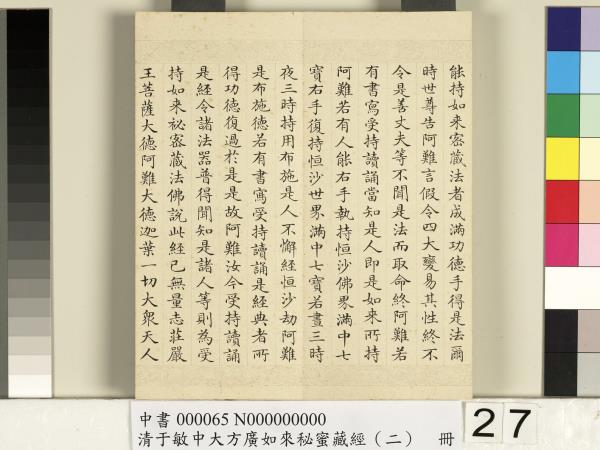 能持如來密藏法者成滿功德手得是法爾
時世尊告阿難言假令四大變易其性終不
令是善丈夫等不聞是法而取命終阿難若
有書寫受持讀誦當知是人即是如來所持
阿難若有人能右手執持恒沙佛界滿中七
寶右手復持恒沙世界滿中七寶若晝三時
夜三時持用布施是人不懈經恒沙劫阿難
是布施德若有書寫受持讀誦是經典者所
得功德復過於是是故阿難汝今受持讀誦
是經令諸法器普得聞知是諸人等則為受
持如來祕密藏法佛說此經已無量志莊嚴
王菩薩大德阿難大德迦葉一切大眾天人
中書 000065 N000000000
清于敏中大方廣如來秘蜜藏經（二） 冊
27